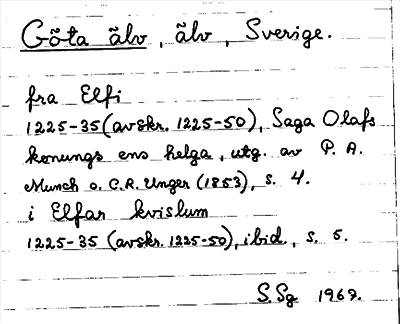 Göta älv, älv, Sverige.
fra Elfi
1225-35 (avskr. 1225-50), Saga Olafs
konungs ens helga, utg. av P. A.
Munch o. C.R. Unger (1853), s. 4.
i Elfar kvislum
1225-35 (avskr. 1225-50), ibid., s. 5.
S.Sg 1967.